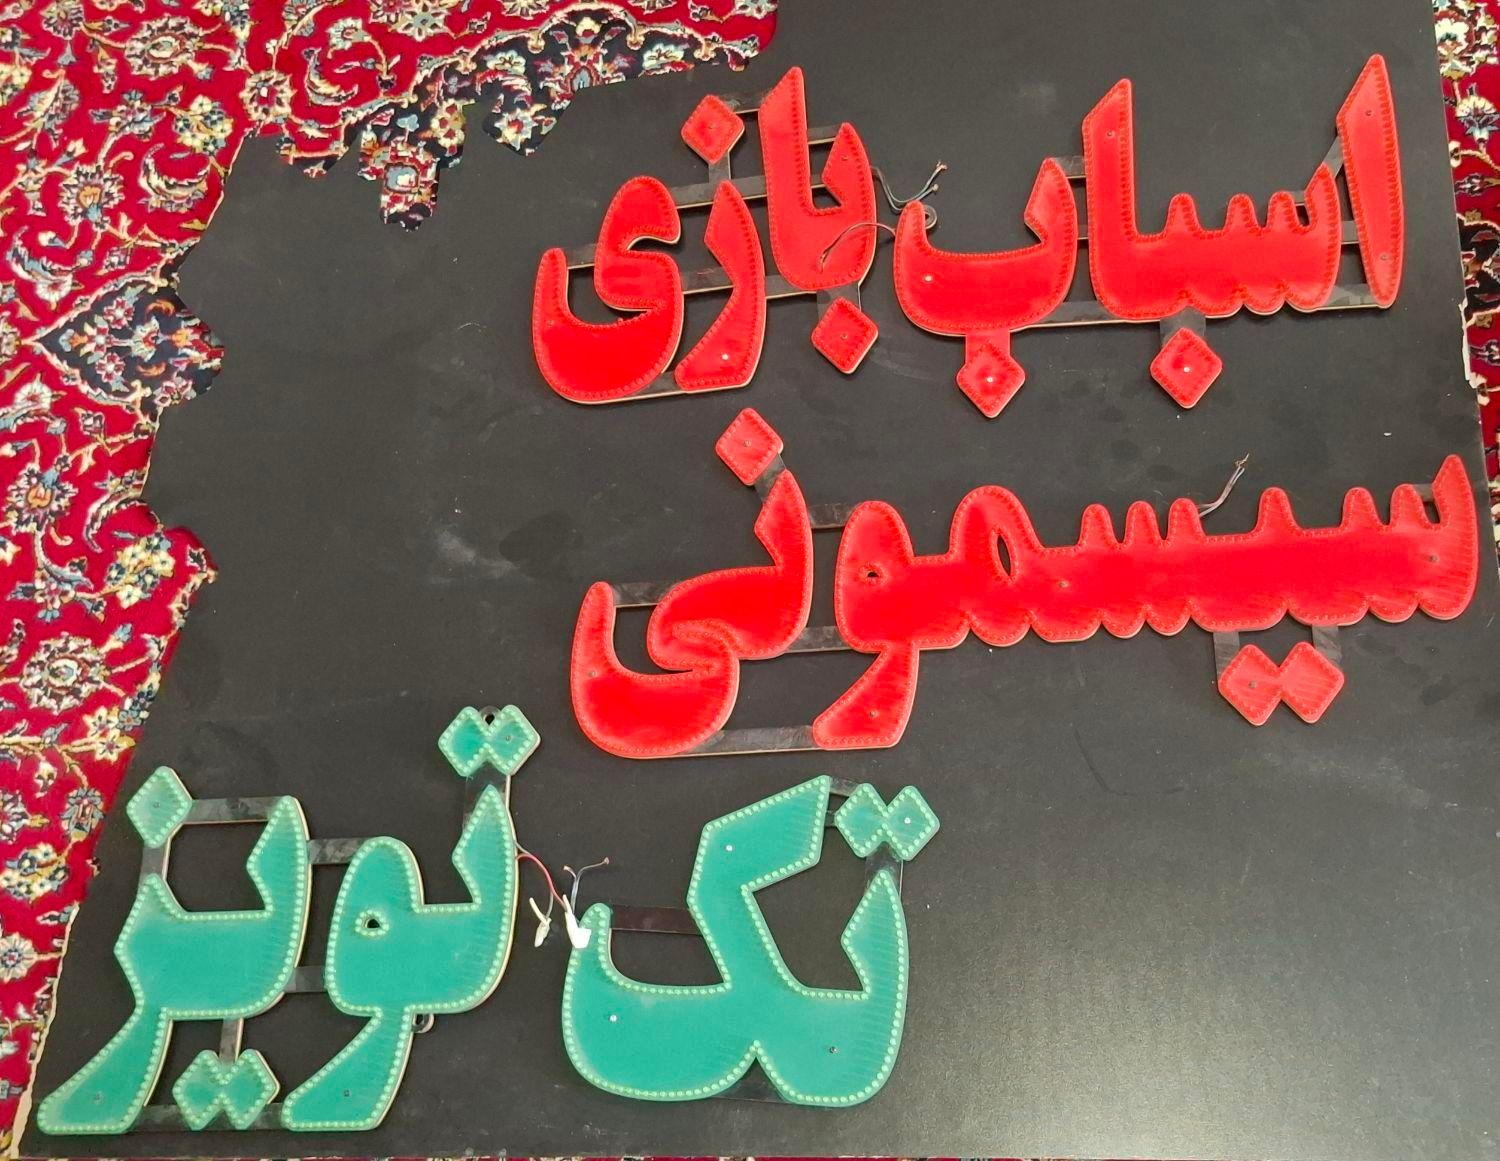 اسباب بازی
سیسمونی
تک تویز